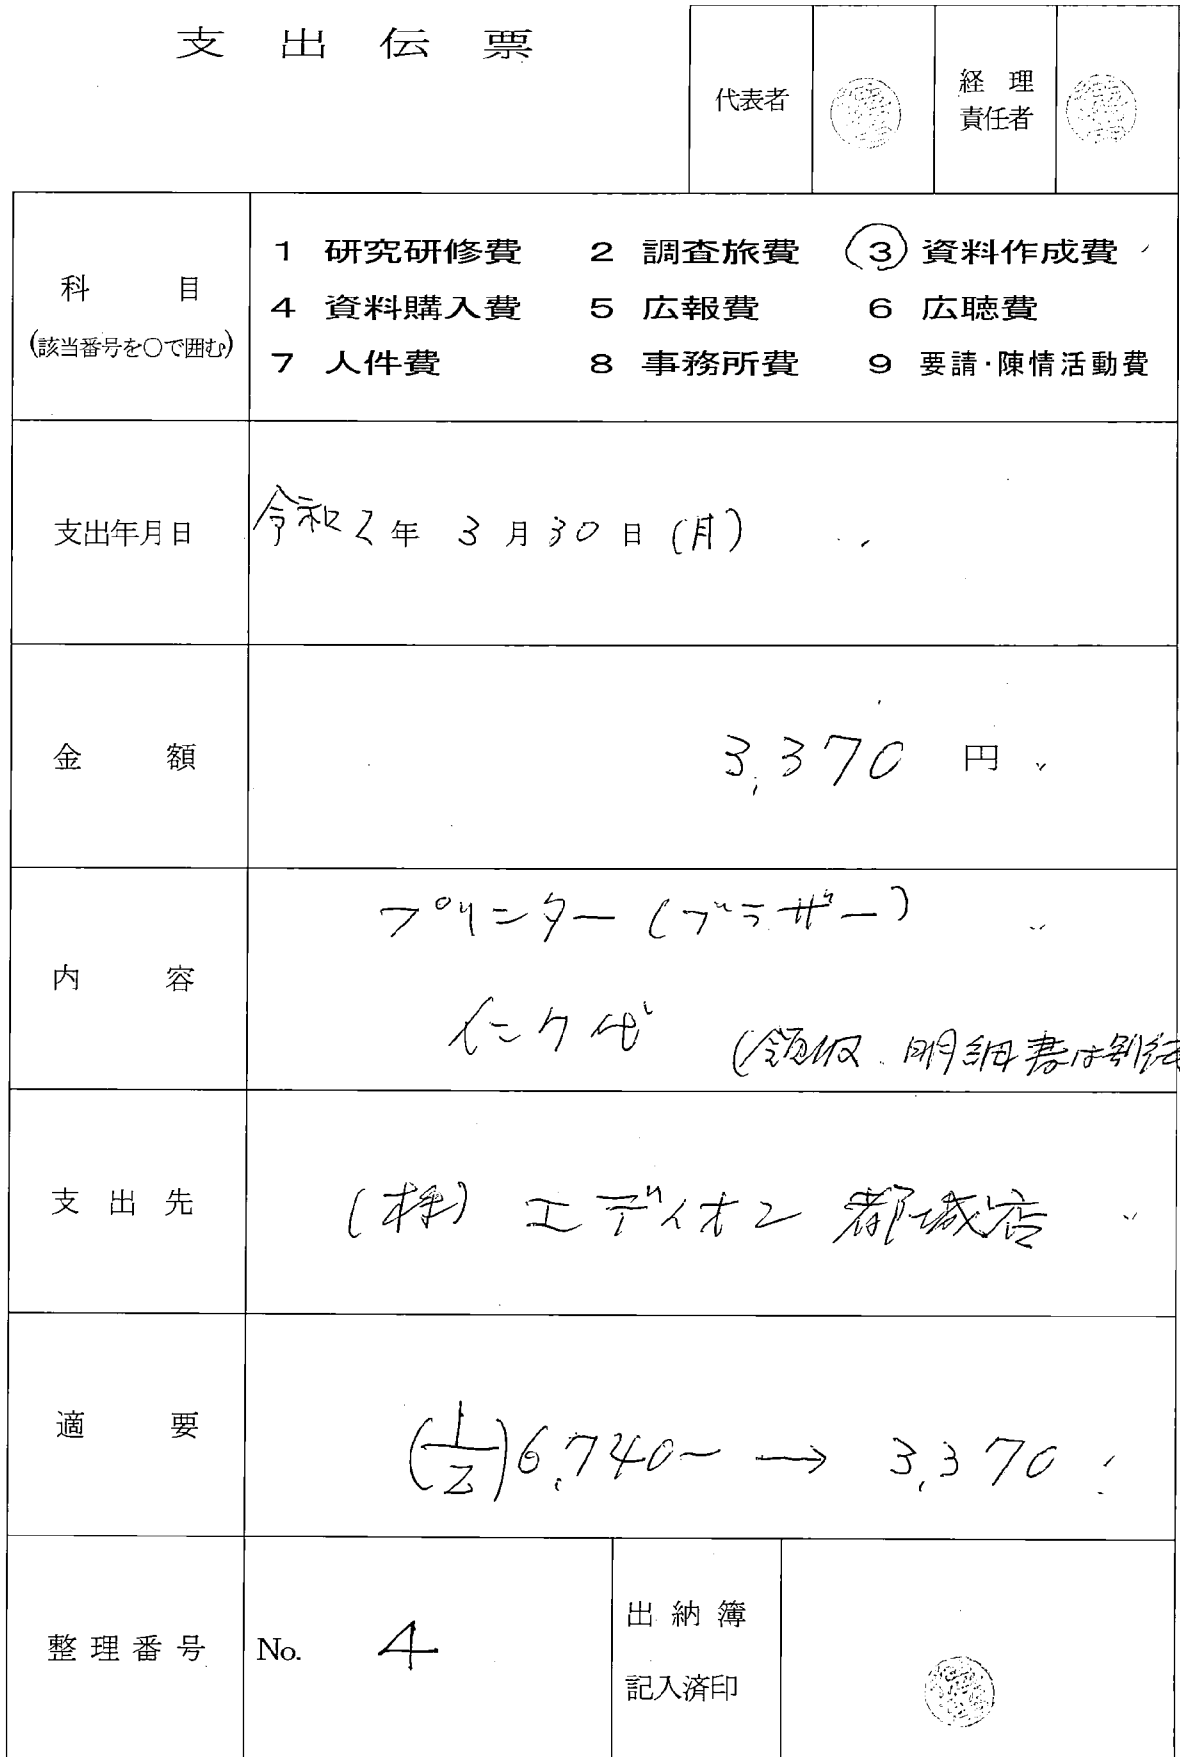 支出伝票
代表者
経理
責任者
科目
(該当番号を〇で囲む)
1 研究研修費 2 調査旅費 3 資料作成費
4 資料購入費 5 広報費 6 広聴費
7 人件費 8 事務所費 9 要請・陳情活動費
支出年月日
令和2年 3月30日(月)
金額
3,370 円
内容
プリンター(ブラザー)
インク代
(領収、明細書は別紙
支出先
(株) エディオン 都城店
適要
(1/2) 6,740~ → 3,370
整理番号
No. 4
出納簿
記入済印